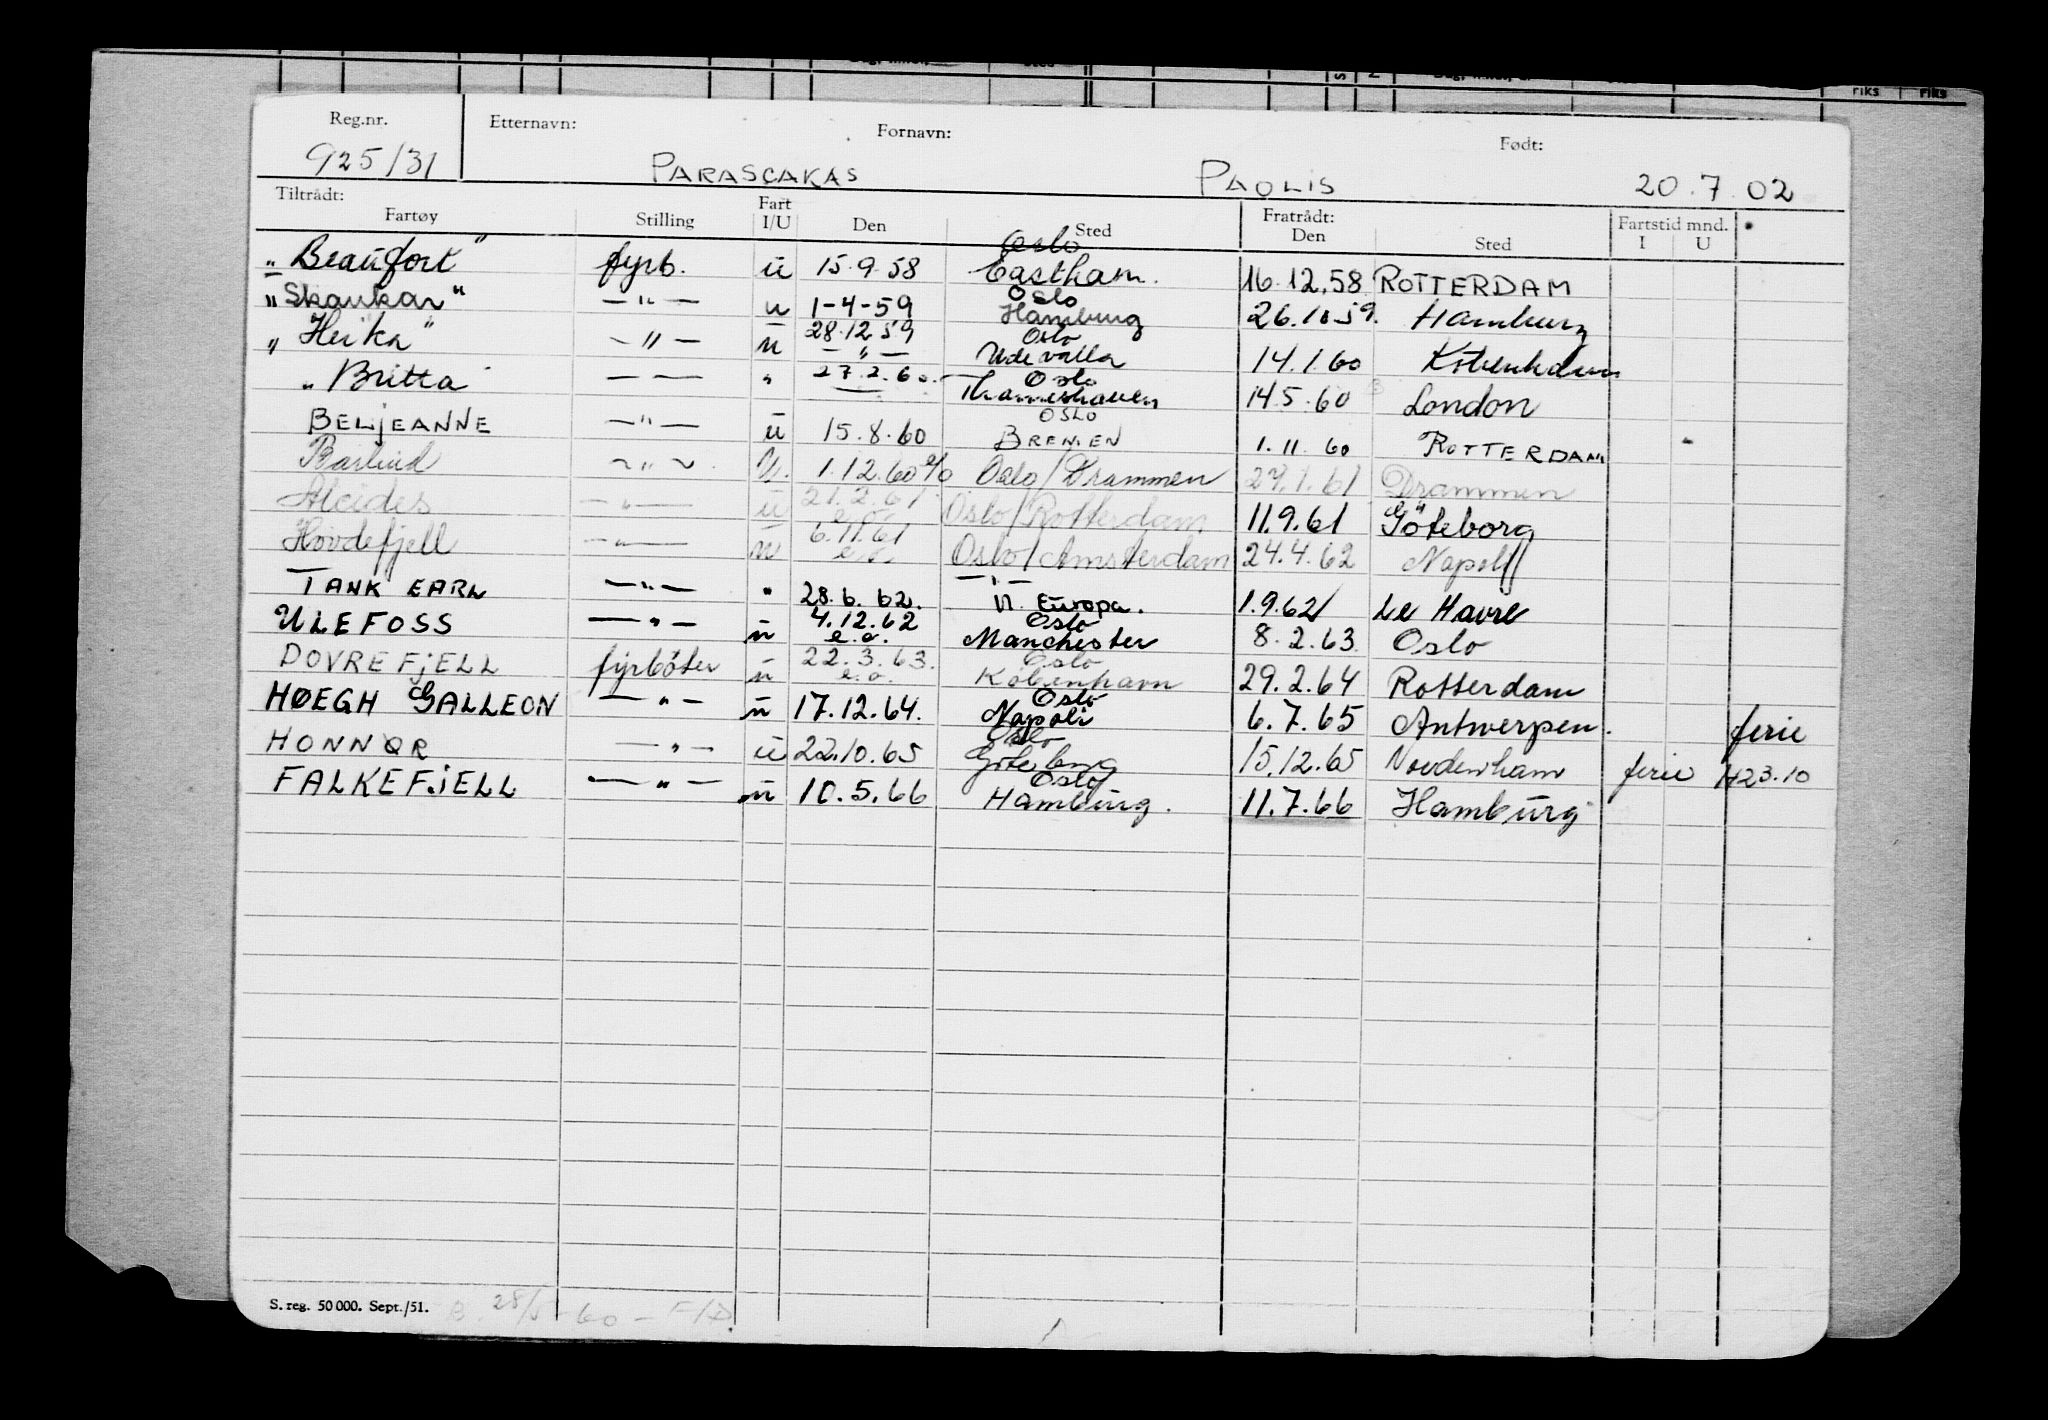 Reg.nr. Etternavn: Fornavn: Født:
925/31 PARASCAKAS PAOLIS 20.7.02
Tiltrådt: Fart Fratrådt: Fartstid mnd.
Fartøy Stilling I/U Den Sted Den Sted I U
Oslo
"Beaufort" fyrb. u 15.9.58 Eastham. 16.12.58 ROTTERDAM
Oslo
"Skaukar" —"— u 1-4-59 Hamburg 26.10.59. Hamburg
28.12.59 Oslo
"Heika" —"— u —"— Udevalla 14.1.60 København
27.2.60. Oslo
"Britta — — " — Thameshaven 14.5.60 London
OSLO
BELJEANNE —"— u 15.8.60 BREMEN 1.11.60 ROTTERDAM
Barlind —"— u. 1.12.60 e/o Oslo/Drammen 27.1.61 Drammen
21.2.61
Alcides —"— u e.o. Oslo/Rotterdam 11.9.61 Göteborg
6.11.61
Hovdefjell —"— u e.o. Oslo/Amsterdam 24.4.62 Napoli
—"—
TANK EARL —"— " 28.6.62. N. Europa. 1.9.62 Le Havre
4.12.62 Oslo
ULEFOSS —"— u e.o. Manchester 8.2.63 Oslo
22.3.63. Oslo
DOVREFJELL fyrbøter u e.o. København 29.2.64 Rotterdam
Oslo
HØEGH GALLEON —"— u 17.12.64. Napoli 6.7.65 Antwerpen. ferie
Oslo
HONNØR —"— u 22.10.65 Göteborg 15.12.65 Nordenham ferie H23.10
Oslo
FALKEFJELL —"— u 10.5.66 Hamburg. 11.7.66 Hamburg
S. reg. 50 000. Sept./51. B. 28/5-60 - F/D.